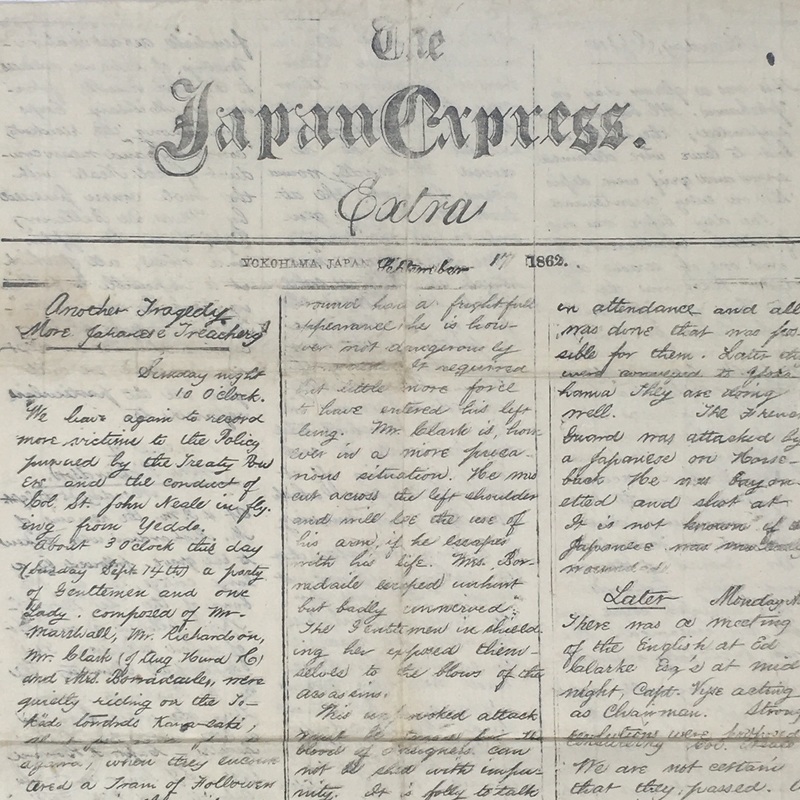 The
Japan Express.
Extra
YOKOHAMA, JAPAN September 17 1862.
Another Tragedy
More Japanese Treachery
Sunday night
10 O'clock.
We have again to record
more victims to the Policy
pursued by the Treaty Pow
ers and the conduct of
Col. St. John Neale in fly-
ing from Yeddo.
About 3 O'clock this day
(Sunday Sept 14th) a party
of Gentlemen and one
Lady. composed of Mr.
Marshall, Mr. Richardson,
Mr. Clark (of Aug Heard & Co)
and Mrs Borradaile, were
quietly riding on the To-
kido towards Kawasaki,
when they encoun
tered a Train of
wound had a frightfull
appearance he is how-
ever not dangerously
It required
but little more force
to have entered his left
lung. Mr. Clark is, how
ever in a more preca-
rious situation. He was
cut across the left shoulder
and will lose the use of
his arm, if he escapes
with his life. Mrs. Bor-
radaile escaped unhurt
but badly unnerved.
The Gentlemen in shield-
ing her exposed them-
selves to the blows of the
assassins.
This unprovoked attack
blood of can
not be shed with impu-
nity. It is folly to talk
in attendance and all
was done that was pos-
sible for them. Later they
were conveyed to Yoko
hama they are doing
well. The French
Guard was attacked by
a Japanese on Horse-
back He was Bayon-
etted and shot at
It is not known if the
Japanese was
wounded.
Later Monday
There was a meeting
of the English at Ed
Clarke Esq's at mid
night, Capt. Vyse acting
as Chairman. Strong
resolutions were proposed
Col. Neale
We are not certain
that they passed.